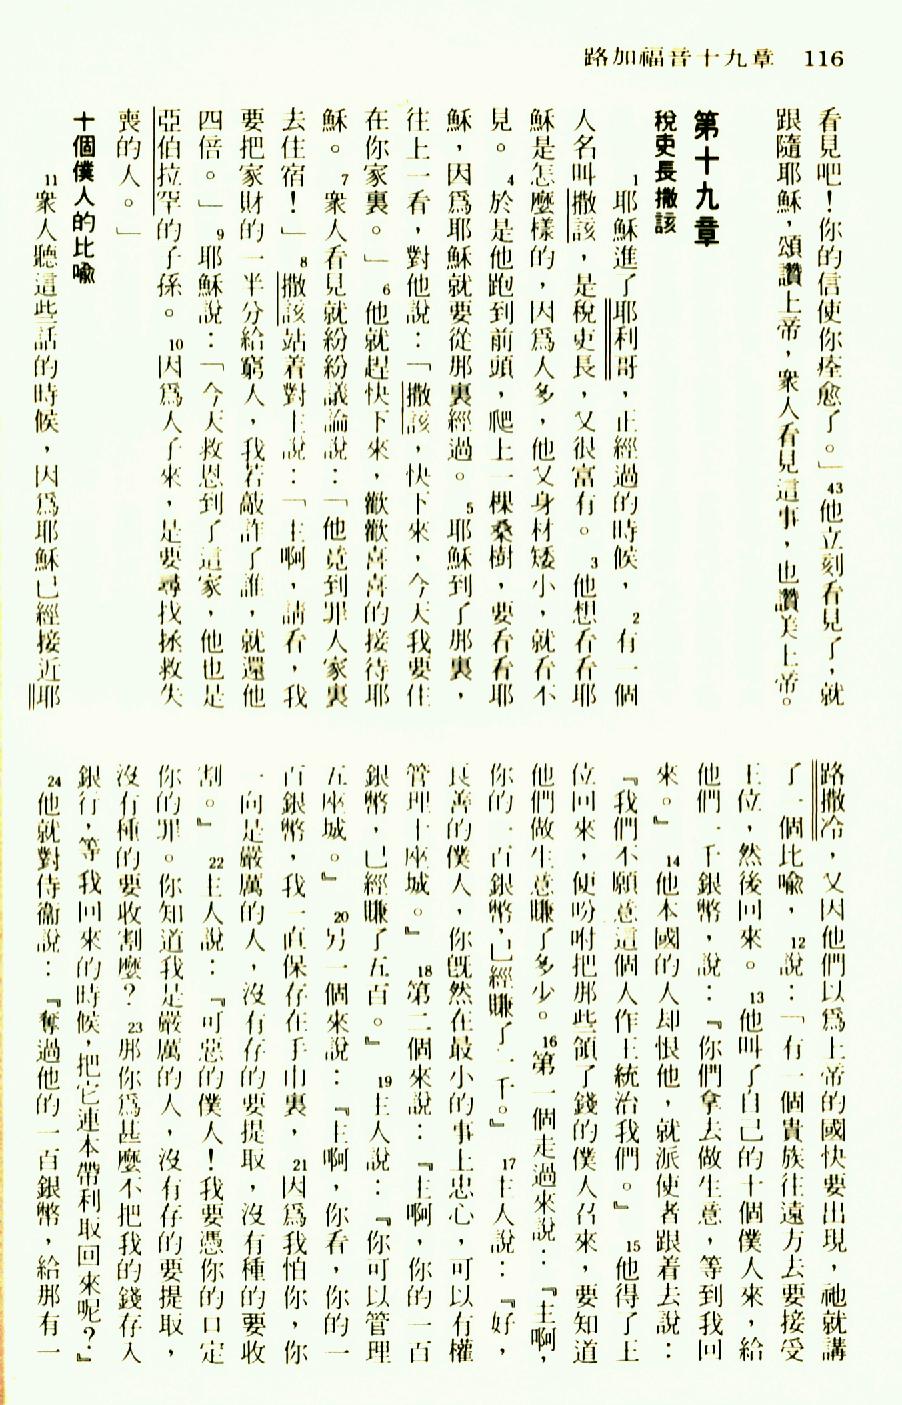 路加福音十九章　116
看見吧！你的信使你痊愈了。」43他立刻看見了，就
跟隨耶穌，頌讚上帝，衆人看見這事，也讚美上帝。
第十九章
稅吏長撒該
1耶穌進了耶利哥，正經過的時候，2有一個
人名叫撒該，是稅吏長，又很富有。3他想看看耶
穌是怎麼樣的，因爲人多，他又身材矮小，就看不
見。4於是他跑到前頭，爬上一棵桑樹，要看看耶
穌，因爲耶穌就要從那裏經過。5耶穌到了那裏，
往上一看，對他說：「撒該，快下來，今天我要住
在你家裏。」6他就趕快下來，歡歡喜喜的接待耶
穌。7衆人看見就紛紛議論說：「他竟到罪人家裏
去住宿！」8撒該站着對主說：「主啊，請看，我
要把家財的一半分給窮人，我若敲詐了誰，就還他
四倍。」9耶穌說：「今天救恩到了這家，他也是
亞伯拉罕的子孫。10因爲人子來，是要尋找拯救失
喪的人。」
十個僕人的比喻
11衆人聽這些話的時候，因爲耶穌已經接近耶
路撒冷，又因他們以爲上帝的國快要出現，祂就講
了一個比喻，12說：「有一個貴族往遠方去要接受
王位，然後回來。13他叫了自己的十個僕人來，給
他們一千銀幣，說：『你們拿去做生意，等到我回
來。』14他本國的人却恨他，就派使者跟着去說：
『我們不願意這個人作王統治我們。』15他得了王
位回來，便吩咐把那些領了錢的僕人召來，要知道
他們做生意賺了多少。16第一個走過來說：『主啊，
你的一百銀幣，已經賺了一千。』17主人說：『好，
良善的僕人，你旣然在最小的事上忠心，可以有權
管理十座城。』18第二個來說：『主啊，你的一百
銀幣，已經賺了五百。』19主人說：『你可以管理
五座城。』20另一個來說：『主啊，你看，你的一
百銀幣，我一直保存在手巾裏，21因爲我怕你，你
一向是嚴厲的人，沒有存的要提取，沒有種的要收
割。』22主人說：『可惡的僕人！我要憑你的口定
你的罪。你知道我是嚴厲的人，沒有存的要提取，
沒有種的要收割麼？23那你爲甚麼不把我的錢存入
銀行，等我回來的時候，把它連本帶利取回來呢？』
24他就對侍衞說：『奪過他的一百銀幣，給那有一